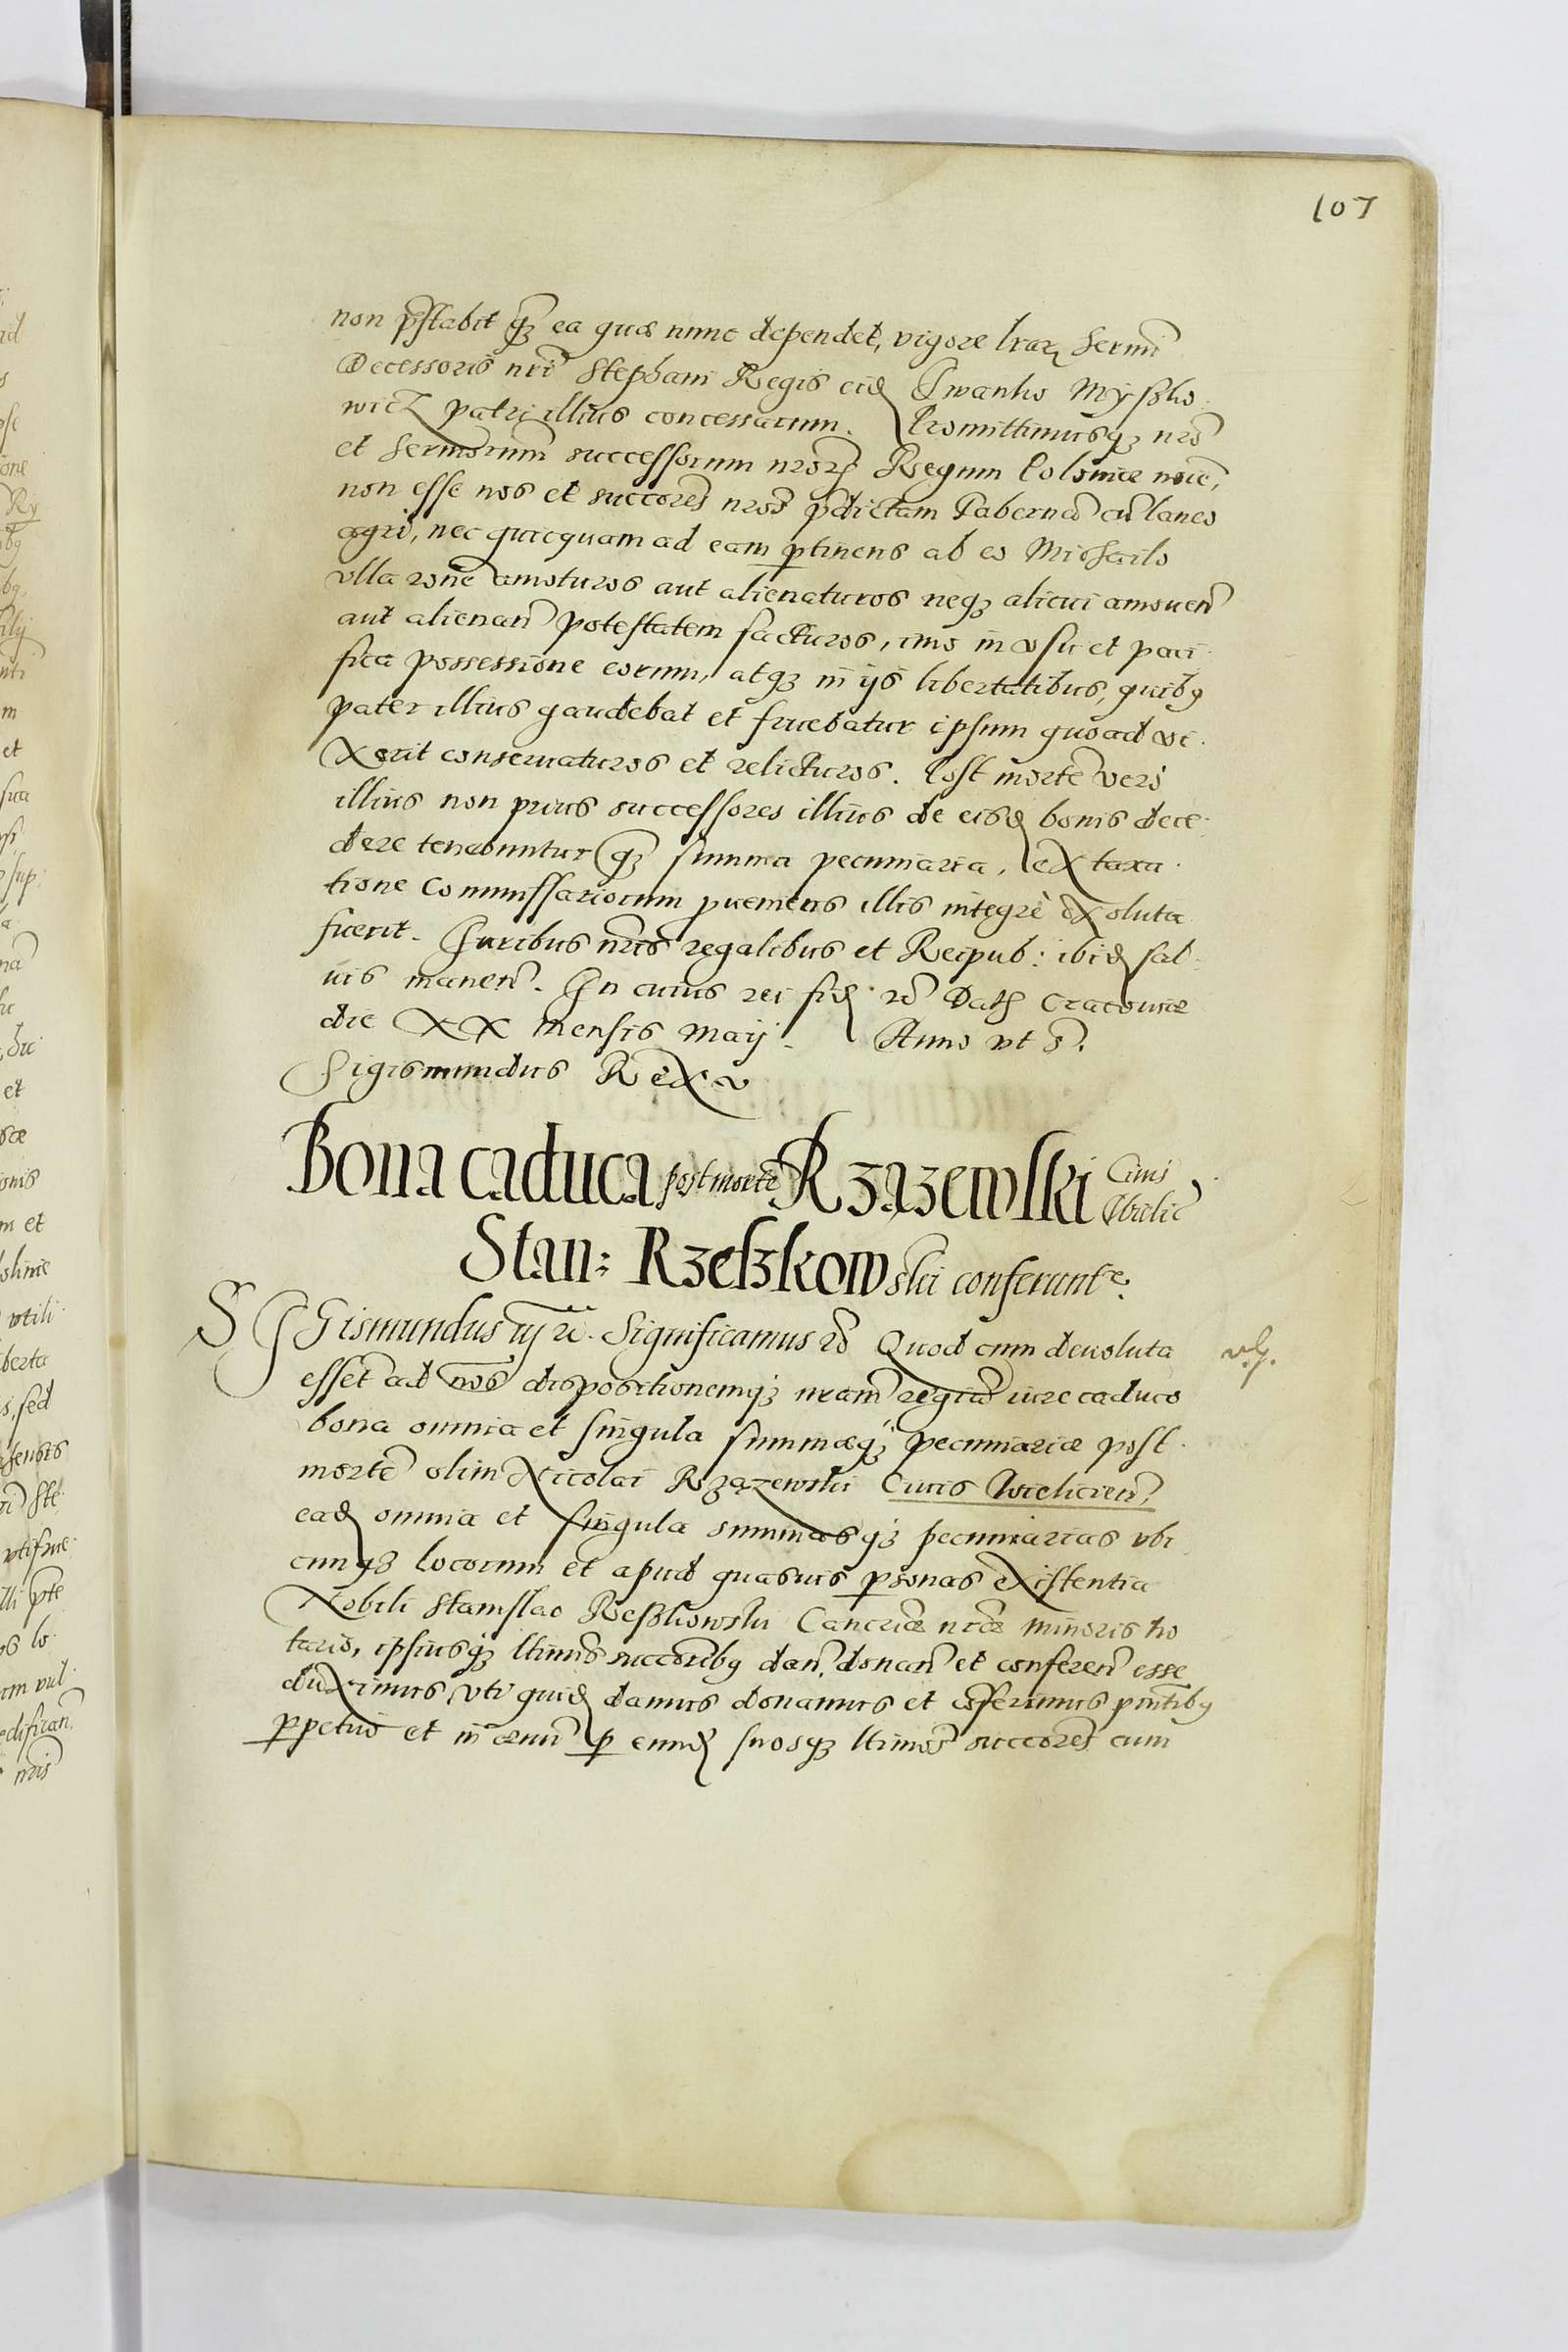 107
non pstabit qz ea quæ nunc dependet, vigore lrarz Sermi
Decessoris nri Stephani Regis eid Iwanko Myszko
wicz patri illius concessarum. Promittimusqz nro
et Sermorum successorum nrorz Regum Poloniæ noie,
non esse nos et succores nros pdictam Tabernã cũ laneo
agri, nec quicquam ad eam ptinens ab eo Michailo
vlla rone amoturos aut alienaturos neqz alicui amouen
aut alienan potestatem facturos, imo in vsu et paci
fica possessione eorum, atqz in ijs libertatibus, quibq
pater illius gaudebat et fruebatur ipsum quoad vi
xerit conseruaturos et relicturos. Post mortẽ vero
illius non prius successores illius de eisd bonis dece
dere tenebuntur qz summa pecuniaria, ex taxa
tione Commissariorum pueniens illis integrè exoluta
fuerit. Iuribus nris regalibus et Reipub: ibid sal
uis manen. In cuius rei fid rõ Dat Cracouiæ
die XX mensis Maij. Anno vt s.
Sigismundus Rex
Bona caduca post mortẽ Rzązewski Ciuis
Stan: Rzeszkowski conferunt.
SIGismundus iij rc. Significamus rõ Quod cum deuoluta
essẽt ad nos dispositionemqz nram regiã iure caduco
bona omnia et singula summæqz pecuniariæ post
mortẽ olim Nicolai Rzązewski Ciuis Wielicien,
ead omnia et singula summasqz pecuniarias vbi
cunqz locorum et apud quasuis psonas existentia
Nobili Stanislao Reszkowski Cancriæ nræ minoris no
tario, ipsiusqz ltimis succoribq dan, donan et conferen esse
duximus, vti quid damus donamus et conferimus pntibq
ppetuo et in æuũ p eund suosqz ltimos succores cum